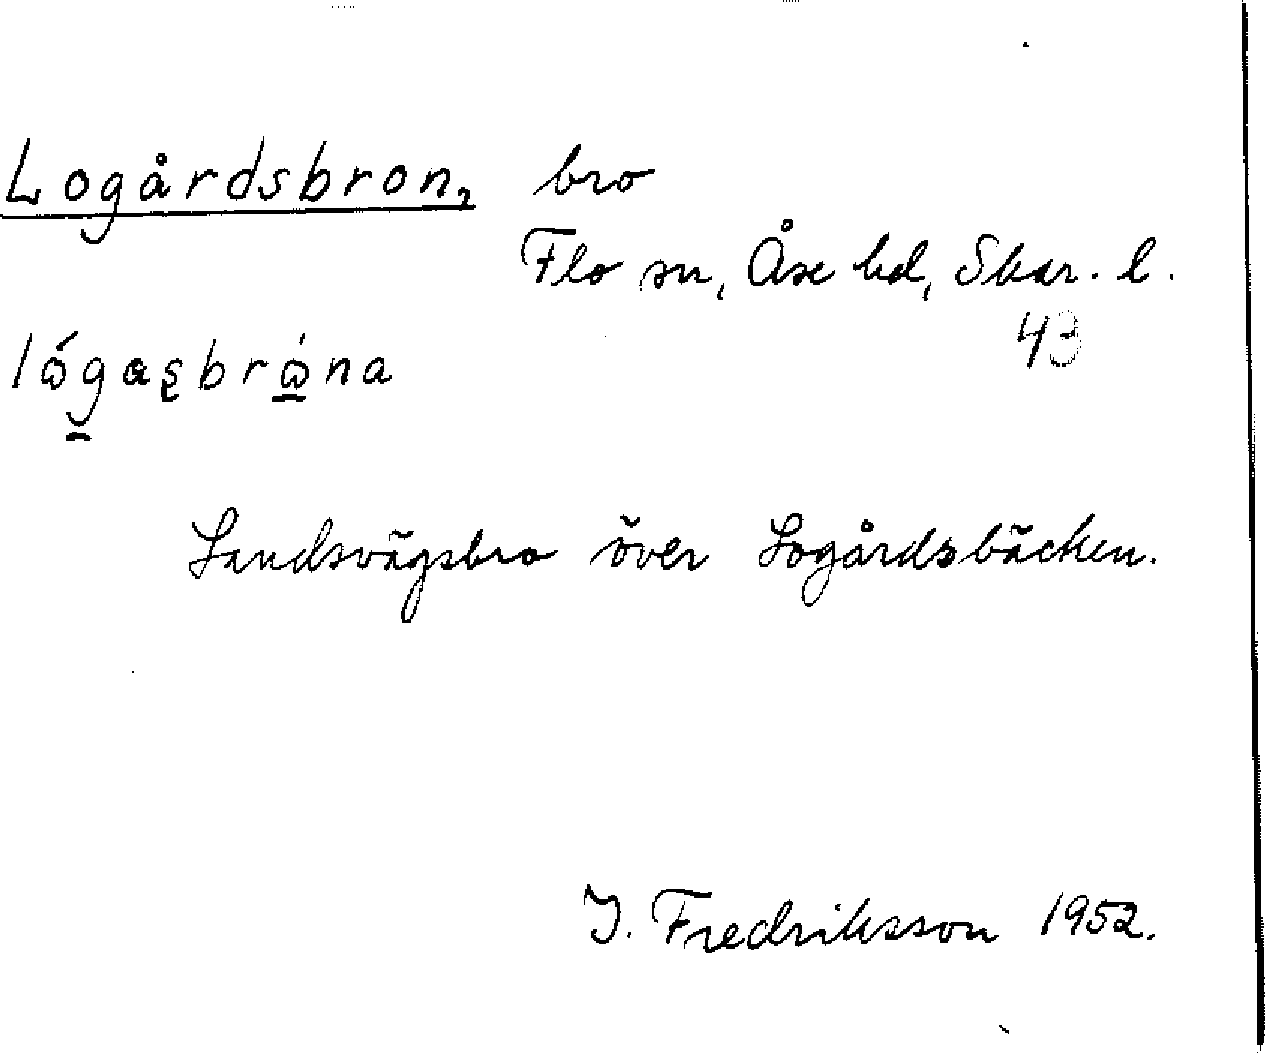 Logårdsbron, bro
Flo sn, Åse hd, Skar. l.
43
lǫ́gaʂbrǫ́na
Landsvägsbro över Logårdsbäcken.
I. Fredriksson 1952.